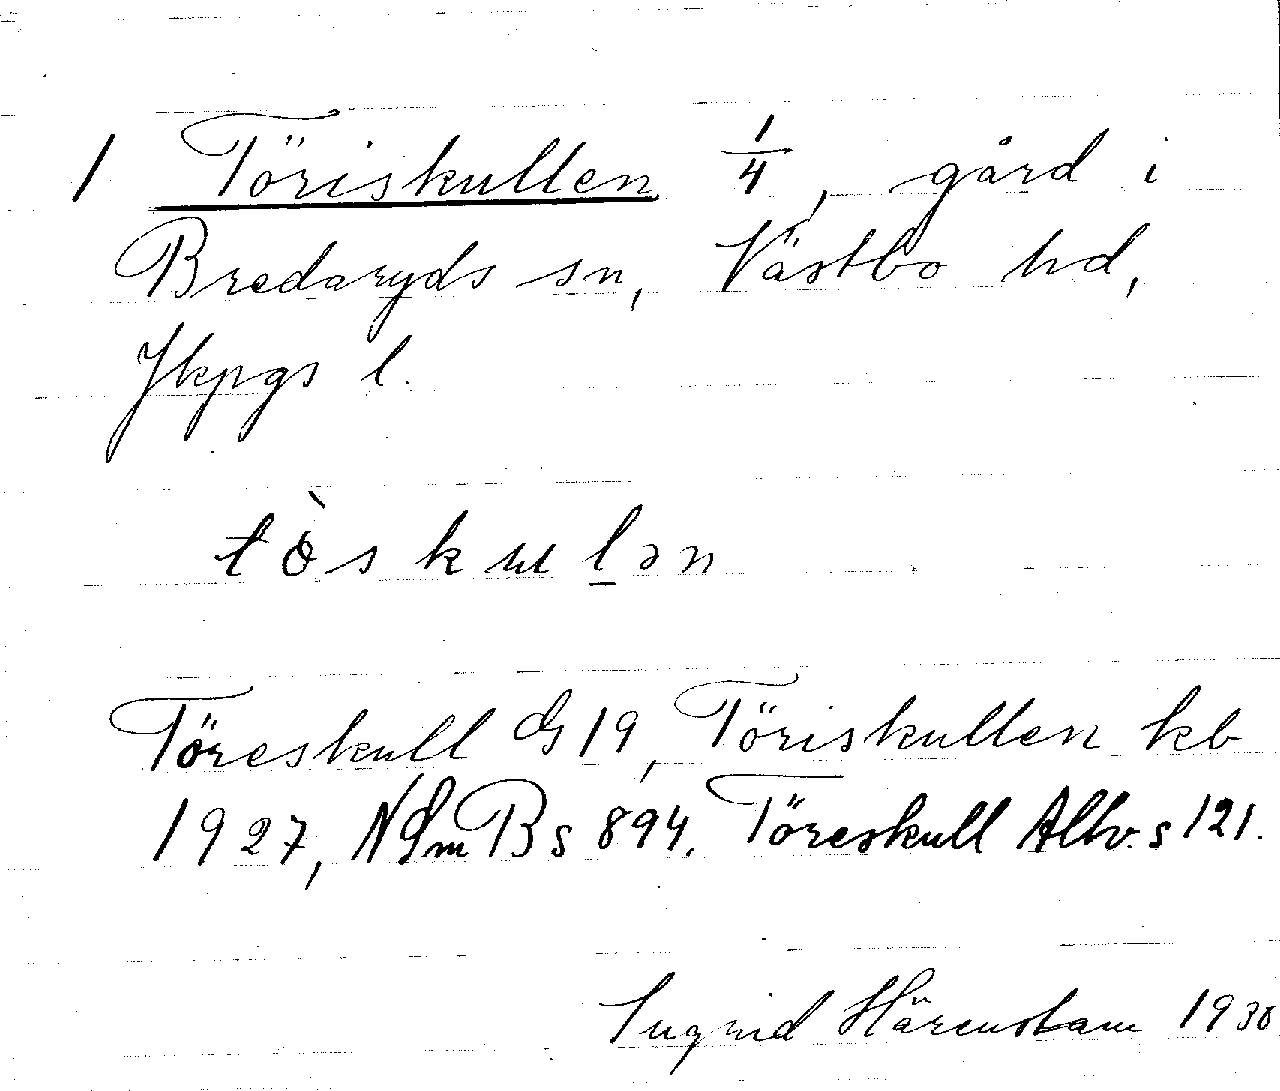 1 Töriskullen 1/4, gård i
Bredaryds sn, Västbo hd,
Jkpgs l.
tö̀skul̲ən
Töreskull GS 19, Töriskullen kb
1927, NSmB s 894. Töreskull Allv. s 121.
Ingrid Härenstam 1930